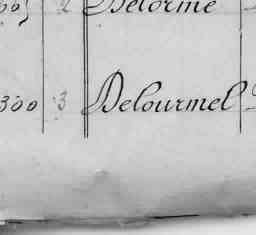 2 Delorme
300 3 Delourmel